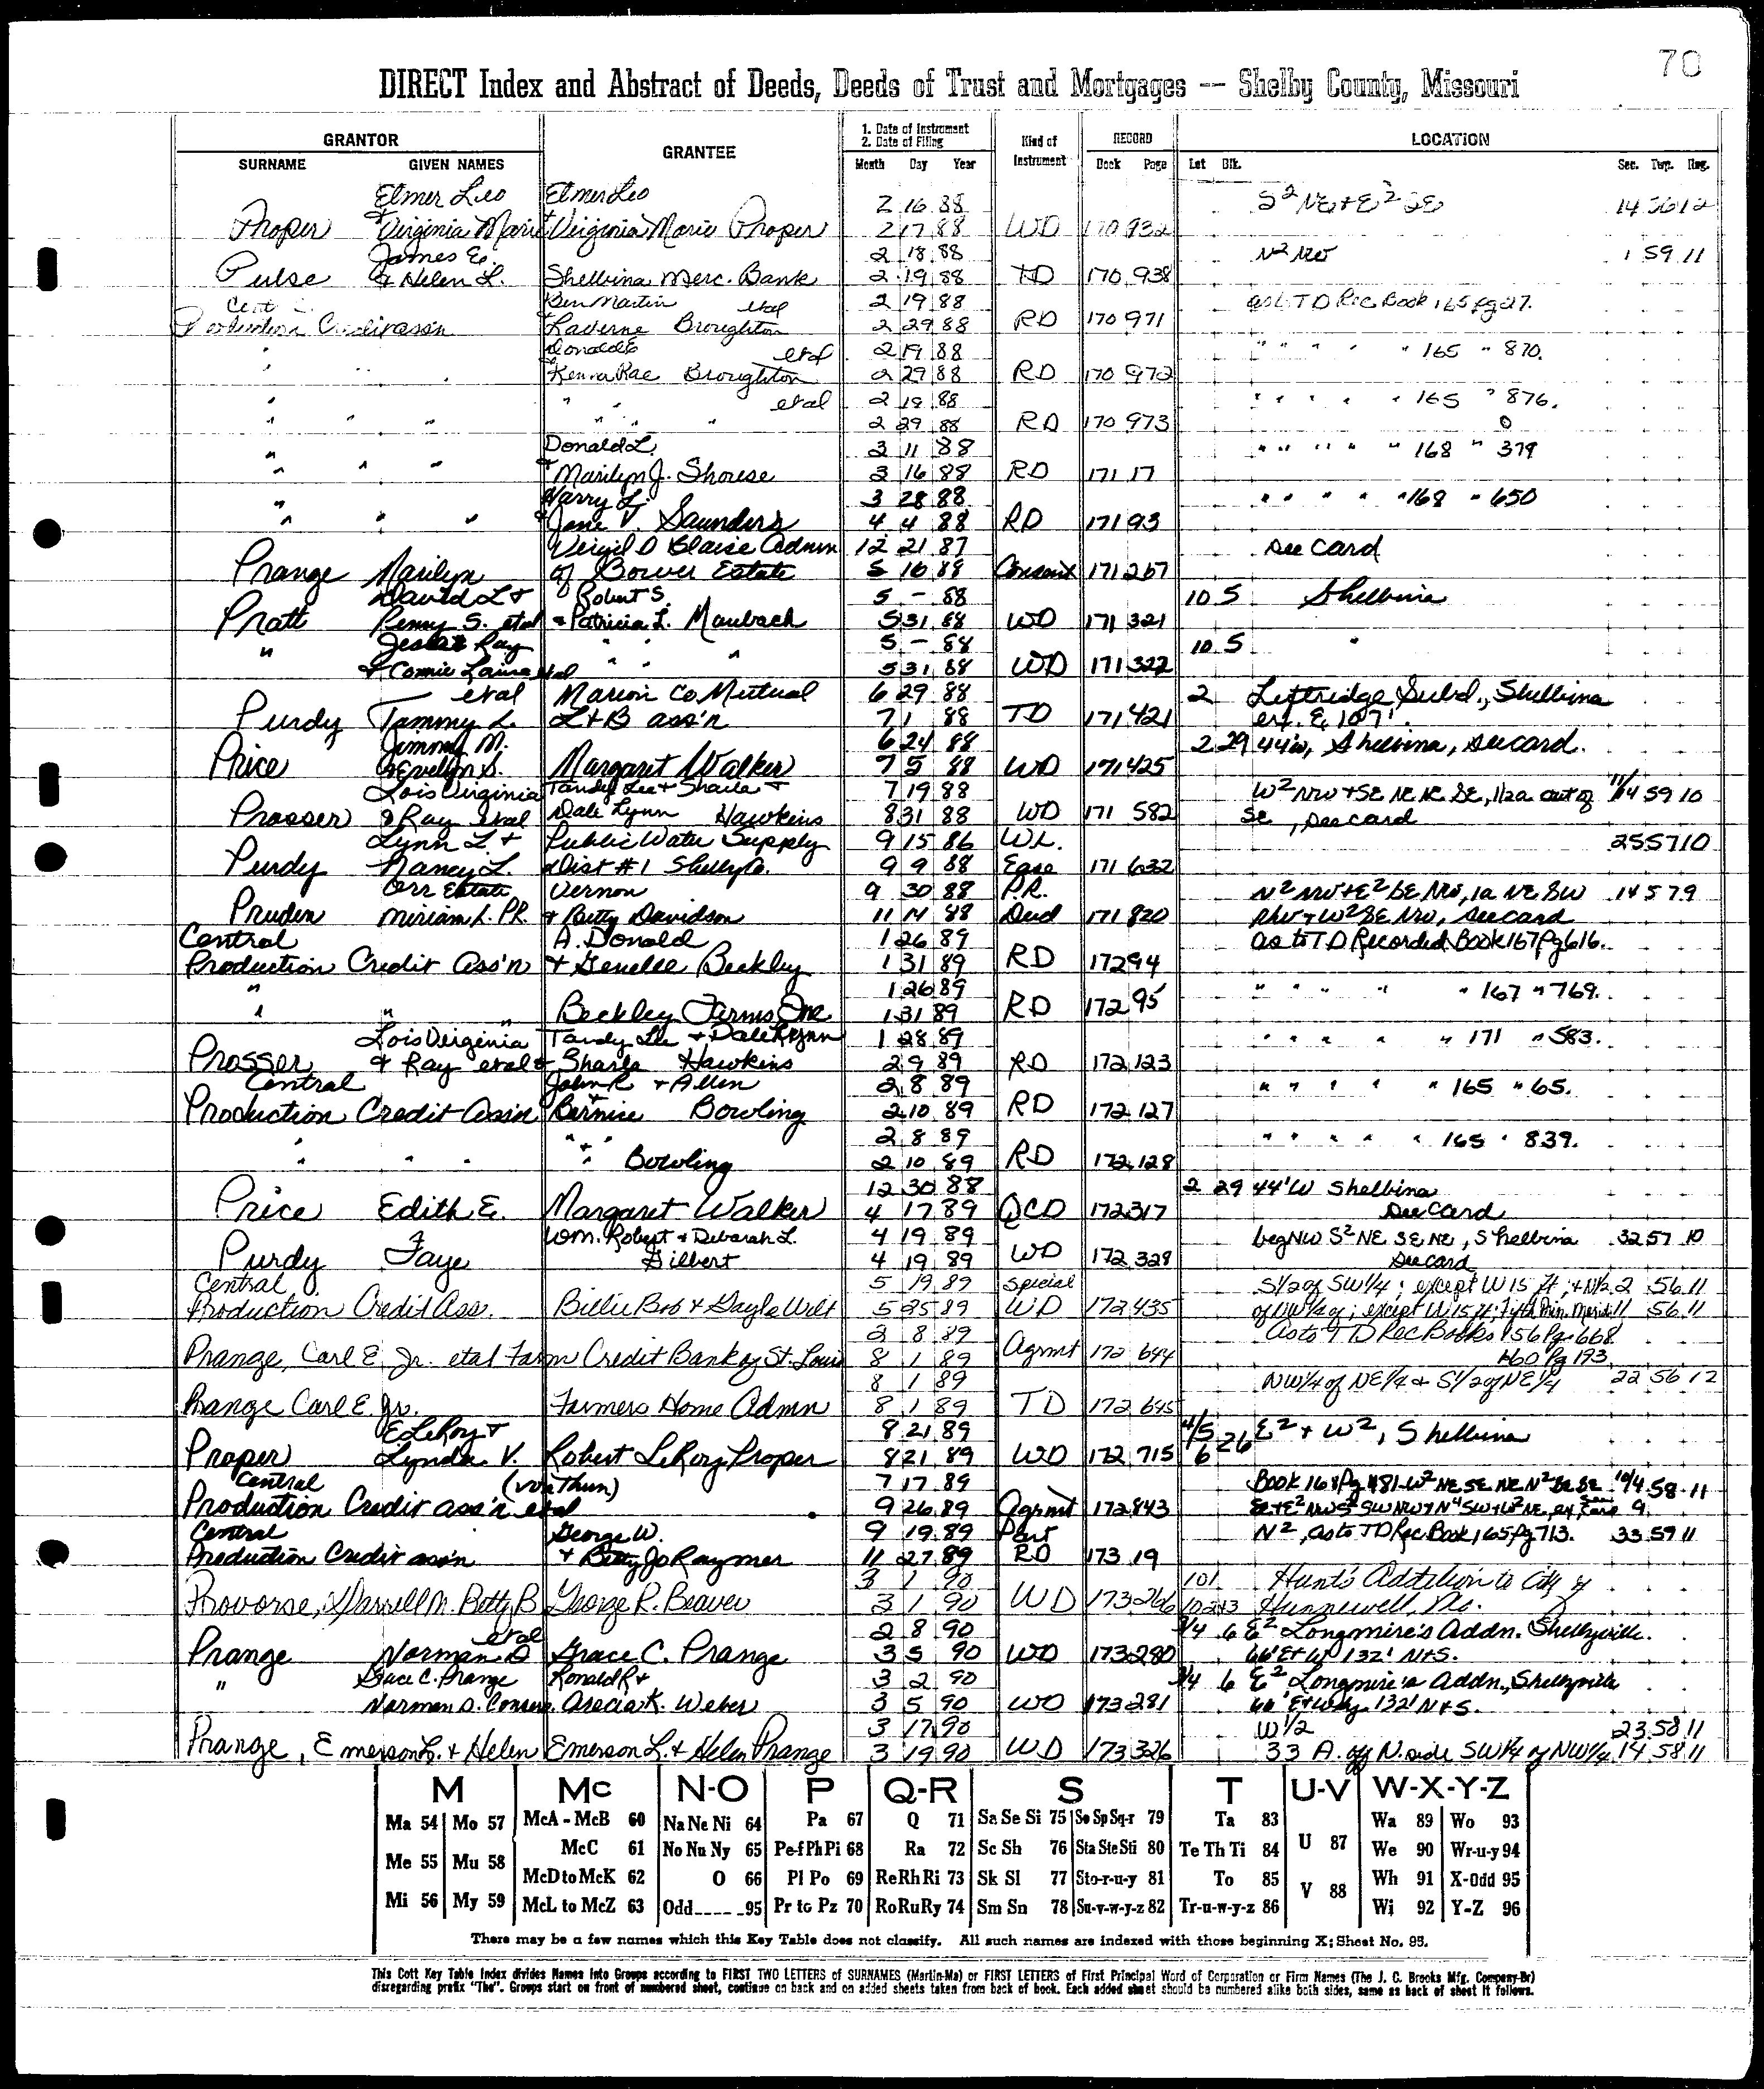 70
DIRECT Index and Abstract of Deeds, Deeds of Trust and Mortgages -- Shelby County, Missouri
GRANTOR GRANTEE 1. Date of Instrument 2. Date of Filing Kind of Instrument RECORD LOCATION
SURNAME GIVEN NAMES Month Day Year Book Page Lot Blk. Sec. Twp. Rng.
Elmer Leo Elmer Leo 2 16 88 S2 NE + E2 SE 14 56 12
Proper & Virginia Marie & Virginia Marie Proper 2 17 88 WD 170 932
James E. 2 18 88 N2 NW 1 59 11
Pulse & Helen L. Shelbina Merc. Bank 2 19 88 TD 170 938
Cent Ben Martin etal 2 19 88 as to TD Rec Book 165 pg 27.
Production Credit assn & Laverne Broughton 2 29 88 RD 170 971
Donald E etal 2 19 88 " " " " " 165 " 870.
" " " & Kenna Rae Broughton 2 29 88 RD 170 972
" " " etal 2 19 88 " " " " " 165 " 876.
" " " " " " 2 29 88 RD 170 973
" Donald L. 3 11 88 " " " " " 168 " 379
" " " & Marilyn J. Shouse 3 16 88 RD 171 17
" Harry L. 3 28 88 " " " " " 168 " 650
" " " & Jane V. Saunders 4 4 88 RD 171 93
Virgil D Blaise Admn 12 21 87 See Card
Prange Marilyn of Bower Estate 5 16 88 Consent 171 267
David L & Robert S. 5 - 88 10 5 Shelbina
Pratt Penny S. etal & Patricia L. Maubach 5 31 88 WD 171 321
" Ray " " " 5 - 88 10 5 "
& Connie etal 5 31 88 WD 171 322
etal Marion Co Mutual 6 29 88 2 Leftridge Subd., Shelbina
Purdy Tammy L. L+B ass'n 7 1 88 TD 171 421 ex. E 107'.
Jimmy M. 6 24 88 2 29 44'W, Shelbina, see card.
Price & Evelyn S. Margaret Walker 7 5 88 WD 171 425
Lois Virginia Tandy Lee & Sharla & 7 19 88 W2 NW + SE NE NE SE, 1/2a out of 11/14 59 10
Prosser & Ray etal Dale Lynn Hawkins 8 31 88 WD 171 582 SE, see card
Lynn L & Public Water Supply 9 15 86 WL. 25 57 10
Purdy Nancy L. Dist #1 Shelby Co. 9 9 88 Ease 171 632
Orr Estate Vernon 9 30 88 P.R. N2 NW + E2 SE NW, 1a NE SW 14 57 9
Pruden Miriam L. PR. & Betty Davidson 11 14 88 Deed 171 820 + W2 SE NW, see card
Central A. Donald 1 26 89 as to TD Recorded Book 167 Pg 616.
Production Credit Ass'n & Genelle Beckley 1 31 89 RD 172 94
" " 1 26 89 " " " " " 167 " 769.
" " " Beckley Farms Inc 1 31 89 RD 172 95
Lois Virginia Tandy Lee & Dale Lynn 1 28 89 " " " " " 171 " 583.
Prosser & Ray etal & Sharla Hawkins 2 9 89 RD 172 123
Central John R & Allen 2 8 89 " " " " " 165 " 65.
Production Credit Assn & Bernice Bowling 2 10 89 RD 172 127
" + " 2 8 89 " " " " " 165 " 839.
" " " " Bowling 2 10 89 RD 172 128
12 30 88 2 29 44'W Shelbina
Price Edith E. Margaret Walker 4 17 89 QCD 172 317 See Card
Wm. Robert & Deborah L. 4 19 89 beg NW S2 NE SE NE, Shelbina 32 57 10
Purdy Faye Gilbert 4 19 89 WD 172 328 See card
Central 5 19 89 Special S1/2 of SW1/4; except W 15 ft; + N1/2 2 56 11
Production Credit Ass. Billie Bob & Gayla Wilt 5 25 89 WD 172 435 of NW1/4 of; except W 15 ft; 11 56 11
2 8 89 As to TD Rec Books 156 Pg 668
Prange, Carl E Jr. etal Farm Credit Bank of St. Louis 8 1 89 Agrmt 172 644 160 Pg 193
8 1 89 NW1/4 of NE1/4 & S1/2 of NE1/4 22 56 12
Prange Carl E. Jr. Farmers Home Admn 8 1 89 TD 172 645
E LeRoy & 8 21 89 4/5 E2 + W2, Shelbina
Proper Lynda V. Robert LeRoy Proper 8 21 89 WD 172 715 6 26
Central (Von Thun) 7 17 89 Book 168 Pg 481 W2 NE SE NE N2 SE SE 10/4 58 11
Production Credit ass'n etal 9 26 89 Agrmt 172 843 9
Central George W. 9 19 89 Part N2, as to TD Rec Book 165 pg 713. 33 59 11
Production Credit ass'n & Betty Jo Raymer 11 27 89 RD 173 19
3 1 90 101 Hunt's Addition to City of
Provorse, Darrell M. Betty B George R. Beaver 3 1 90 WD 173 266 Hunnewell, Mo.
etal 2 8 90 3/4 6 E2 Longmire's Addn. Shelbyville.
Prange Norman D Grace C. Prange 3 5 90 WD 173 280 66' E+W 132' N+S.
" Grace C. Prange Ronald R & 3 2 90 3/4 6 E2 Longmire's Addn., Shelbyville
Norman D. Conserv. K. Weber 3 5 90 WD 173 281 66' E+W by 132' N+S.
3 17 90 W 1/2 23 58 11
Prange, Emerson L. & Helen Emerson L. & Helen Prange 3 19 90 WD 173 326 33 A. off N. side SW1/4 of NW1/4 14 58 11
M Mc N-O P Q-R S T U-V W-X-Y-Z
Ma 54 Mo 57 McA - McB 60 Na Ne Ni 64 Pa 67 Q 71 Sa Se Si 75 So Sp Sq-r 79 Ta 83 U 87 Wa 89 Wo 93
Me 55 Mu 58 McC 61 No Nu Ny 65 Pe-f Ph Pi 68 Ra 72 Sc Sh 76 Sta Ste Sti 80 Te Th Ti 84 We 90 Wr-u-y 94
McD to McK 62 O 66 Pl Po 69 Re Rh Ri 73 Sk Sl 77 Sto-r-u-y 81 To 85 V 88 Wh 91 X-Odd 95
Mi 56 My 59 McL to McZ 63 Odd---- -95 Pr to Pz 70 Ro Ru Ry 74 Sm Sn 78 Su-v-w-y-z 82 Tr-u-w-y-z 86 Wi 92 Y-Z 96
There may be a few names which this Key Table does not classify. All such names are indexed with those beginning X; Sheet No. 95.
This Cott Key Table Index divides Names into Groups according to FIRST TWO LETTERS of SURNAMES (Martin-Ma) or FIRST LETTERS of First Principal Word of Corporation or Firm Names (The J. C. Brooks Mfg. Company-Br)
disregarding prefix "The". Groups start on front of numbered sheet, continue on back and on added sheets taken from back of book. Each added sheet should be numbered alike both sides, same as back of sheet it follows.